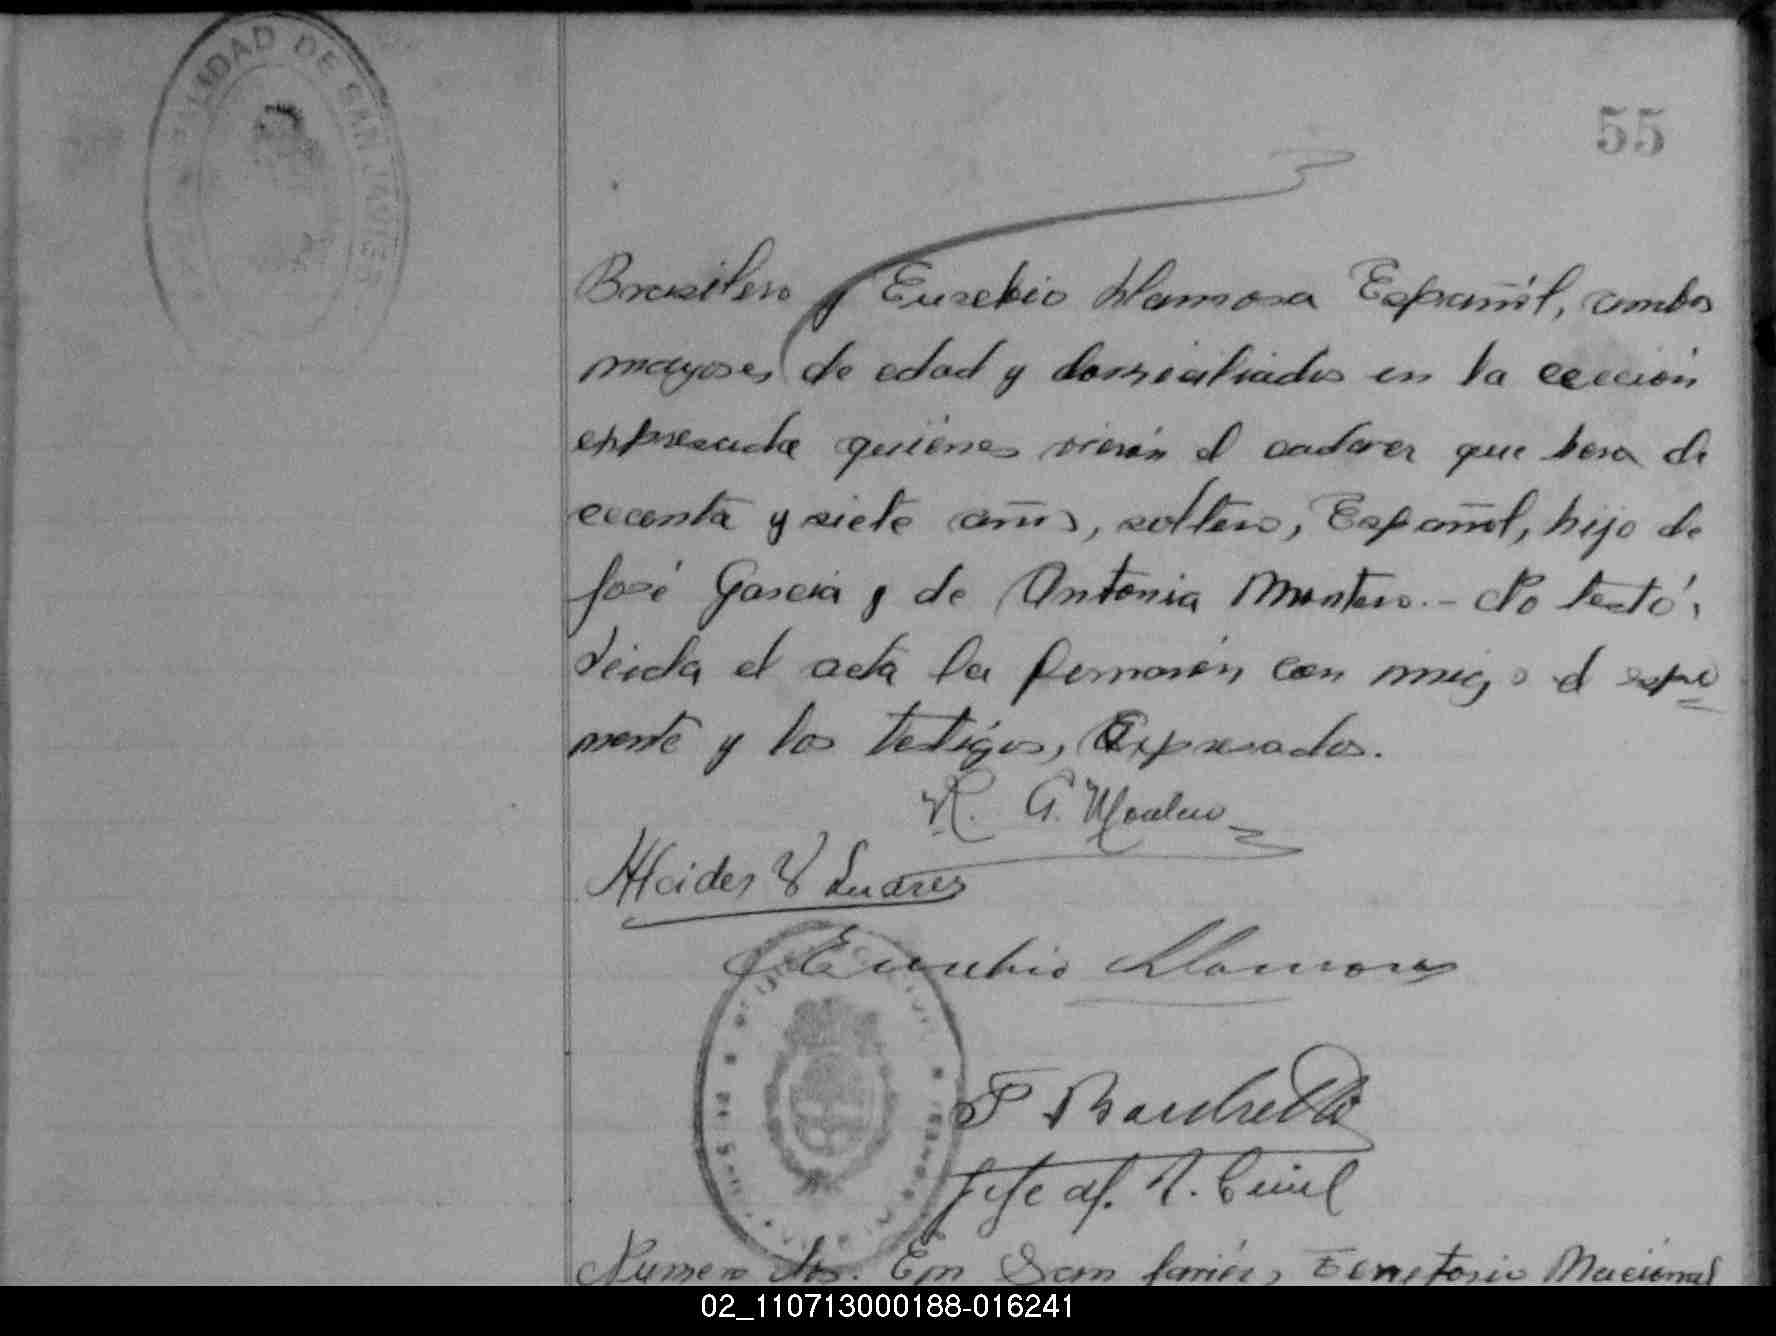 55
Brasilero y Eusebio Llamosa Español, ambos
mayores de edad y domiciliados en la cección
expresada quiénes vierón el cadaver que hera de
cecenta y siete años, soltero, Español, hijo de
José Garcia y de Antonia Montero.- No testó,
Leida el acta la fermarón con migo el expo
nente y los testigos, Expresados.
R. G. Montero
Alcides V Suares
Eusebio Llamosa
Jefe del R. Civil
Numero dos. En San Javier, Territorio Nacional
02_110713000188-016241